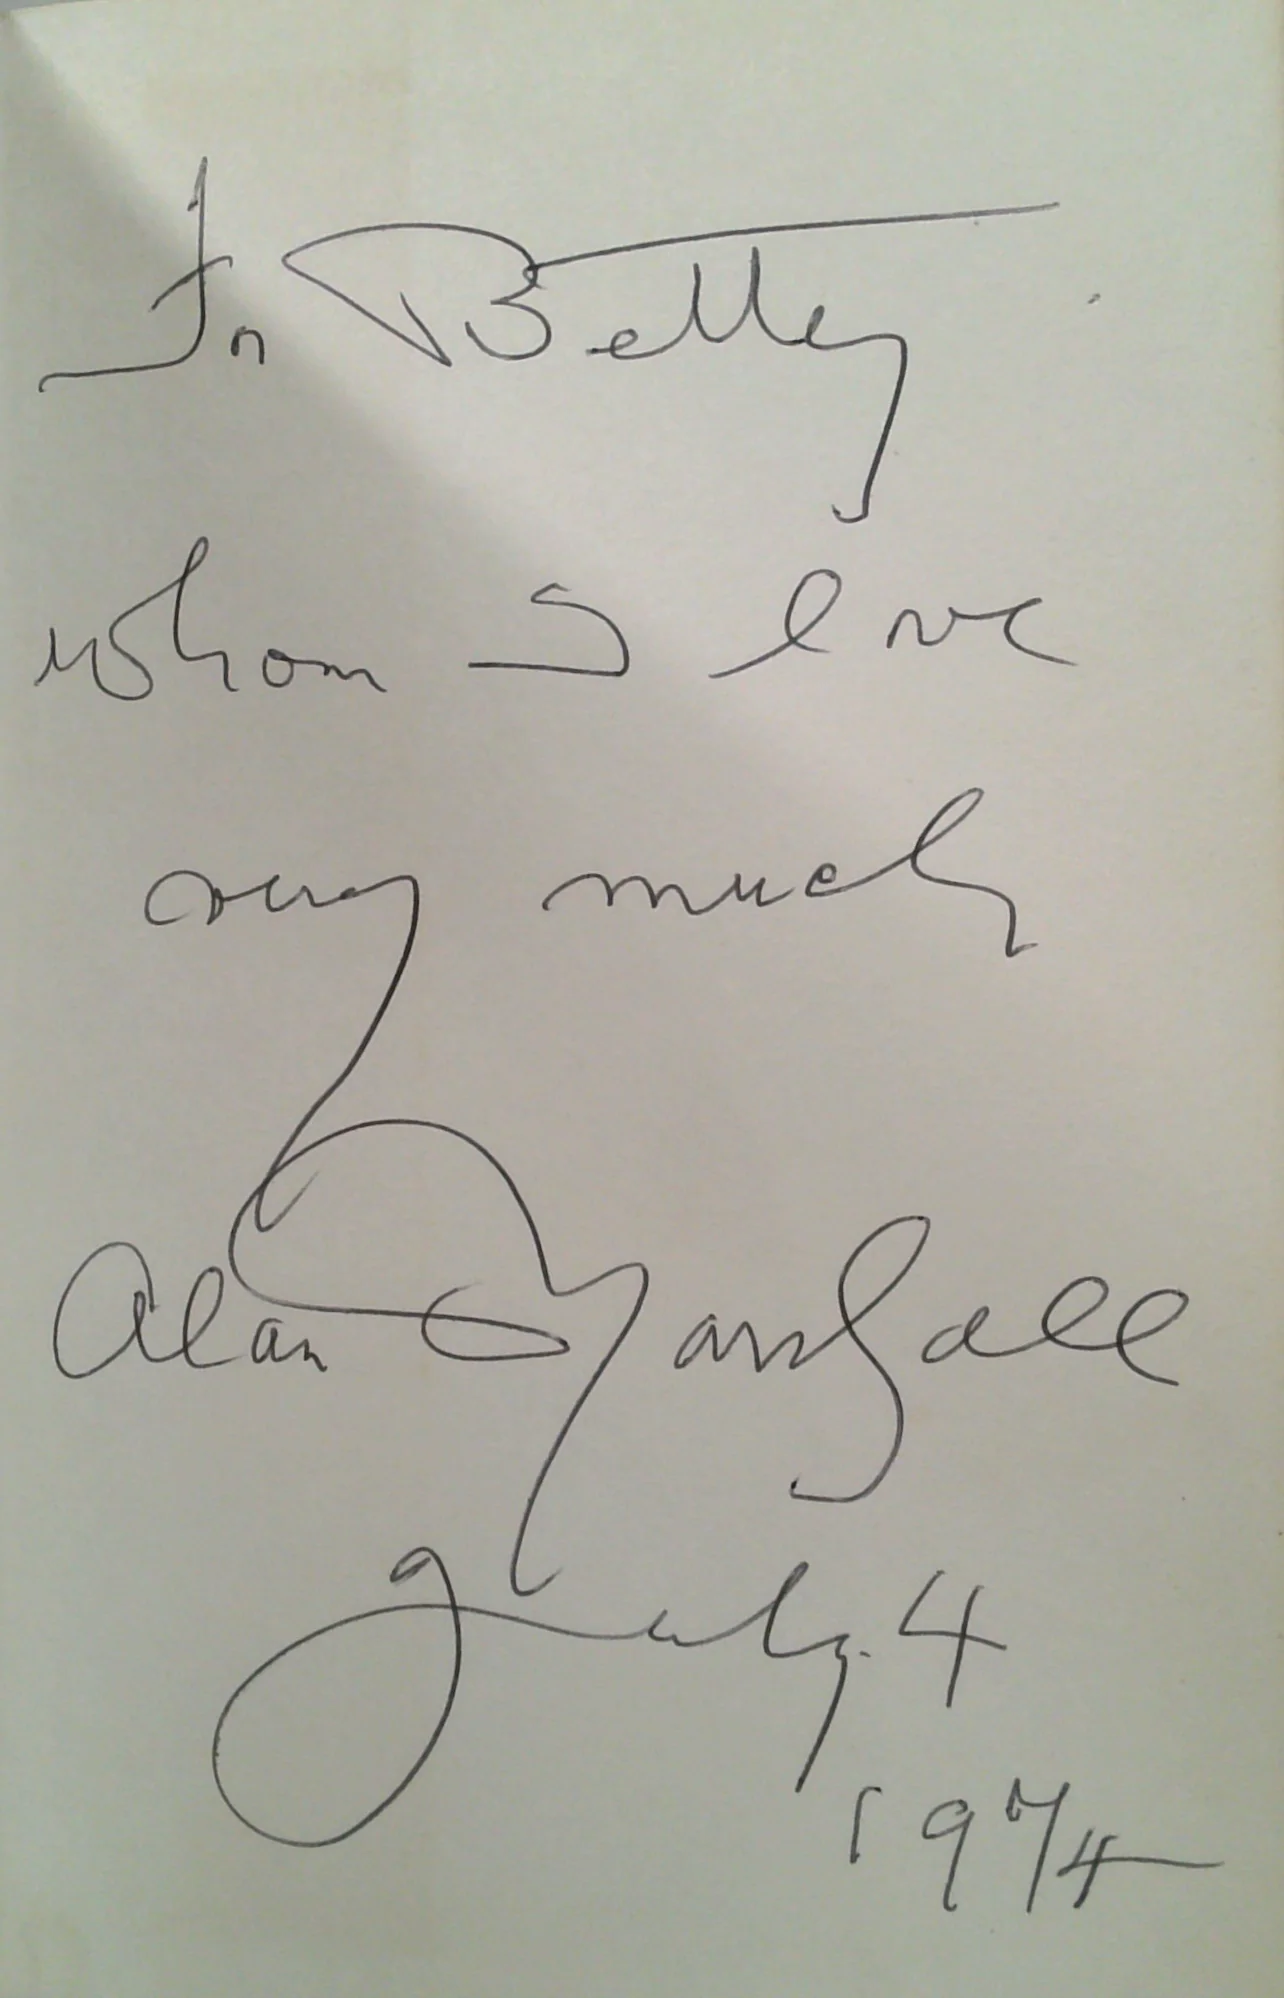 For Betty
whom I love
very much
Alan Marshall
July. 4
1974